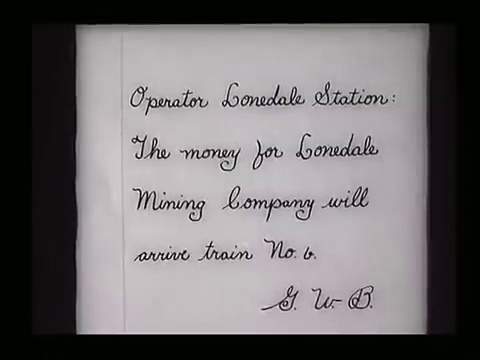 Operator Lonedale Station:
The money for Lonedale
Mining Company will
arrive train No. 6.
G. W. B.